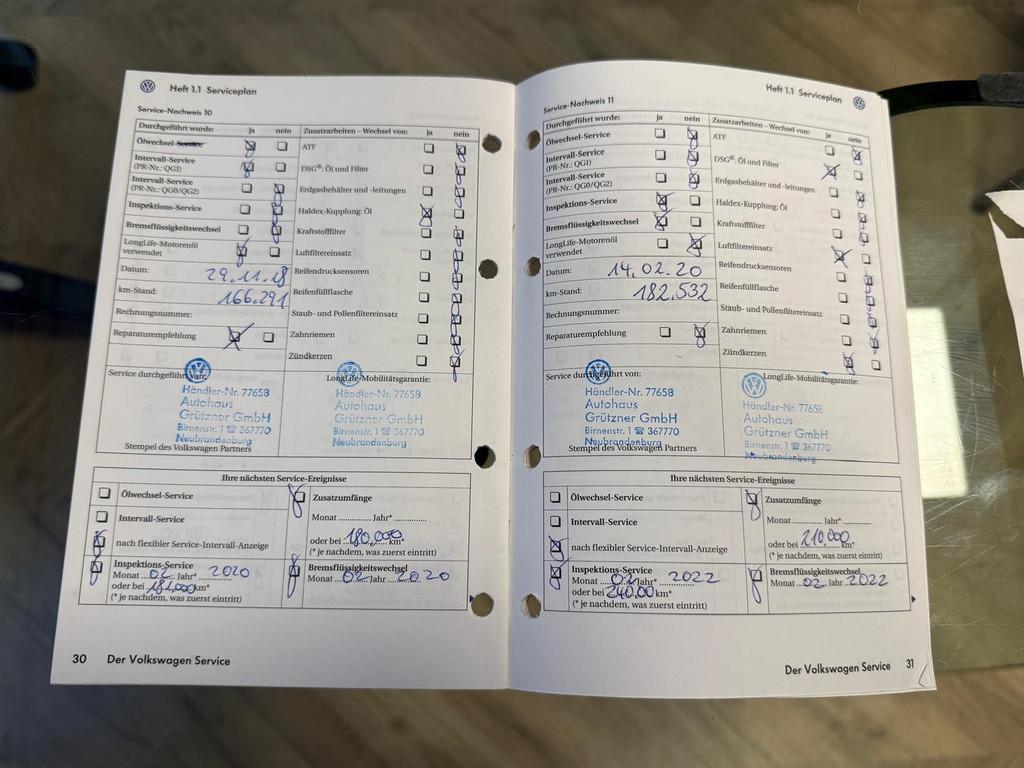 Heft 1.1 Serviceplan
Service-Nachweis 10
Durchgeführt wurde: ja nein
Ölwechsel-Service
Intervall-Service
(PR-Nr.: QGI)
Intervall-Service
(PR-Nr.: QG0/QG2)
Inspektions-Service
Bremsflüssigkeitswechsel
LongLife-Motorenöl
verwendet
Datum: 29.11.18
km-Stand: 166.291
Rechnungsnummer:
Reparaturempfehlung
Zusatzarbeiten – Wechsel von: ja nein
ATF
DSG®: Öl und Filter
Erdgasbehälter und -leitungen
Haldex-Kupplung: Öl
Kraftstofffilter
Luftfiltereinsatz
Reifendrucksensoren
Reifenfüllflasche
Staub- und Pollenfiltereinsatz
Zahnriemen
Zündkerzen
Service durchgeführt von:
Händler-Nr. 77658
Autohaus
Grützner GmbH
Birnenstr. 1 ☎ 367770
Neubrandenburg
Stempel des Volkswagen Partners
LongLife-Mobilitätsgarantie:
Händler-Nr. 77658
Autohaus
Grützner GmbH
Birnenstr. 1 ☎ 367770
Neubrandenburg
Ihre nächsten Service-Ereignisse
Ölwechsel-Service
Intervall-Service
nach flexibler Service-Intervall-Anzeige
Zusatzumfänge
Monat ............ Jahr* ............
oder bei 180.000 km*
(* je nachdem, was zuerst eintritt)
Inspektions-Service
Monat 02 Jahr* 2020
oder bei 181.000 km*
(* je nachdem, was zuerst eintritt)
Bremsflüssigkeitswechsel
Monat 02 Jahr 2020
30 Der Volkswagen Service
Heft 1.1 Serviceplan
Service-Nachweis 11
Durchgeführt wurde: ja nein
Ölwechsel-Service
Intervall-Service
(PR-Nr.: QGI)
Intervall-Service
(PR-Nr.: QG0/QG2)
Inspektions-Service
Bremsflüssigkeitswechsel
LongLife-Motorenöl
verwendet
Datum: 14.02.20
km-Stand: 182.532
Rechnungsnummer:
Reparaturempfehlung
Zusatzarbeiten – Wechsel von: ja nein
ATF
DSG®: Öl und Filter
Erdgasbehälter und -leitungen
Haldex-Kupplung: Öl
Kraftstofffilter
Luftfiltereinsatz
Reifendrucksensoren
Reifenfüllflasche
Staub- und Pollenfiltereinsatz
Zahnriemen
Zündkerzen
Service durchgeführt von:
Händler-Nr. 77658
Autohaus
Grützner GmbH
Birnenstr. 1 ☎ 367770
Neubrandenburg
Stempel des Volkswagen Partners
LongLife-Mobilitätsgarantie:
Händler-Nr. 77658
Autohaus
Grützner GmbH
Birnenstr. 1 ☎ 367770
Neubrandenburg
Ihre nächsten Service-Ereignisse
Ölwechsel-Service
Intervall-Service
nach flexibler Service-Intervall-Anzeige
Zusatzumfänge
Monat ............ Jahr* ............
oder bei 210.000 km*
(* je nachdem, was zuerst eintritt)
Inspektions-Service
Monat 02 Jahr* 2022
oder bei km*
(* je nachdem, was zuerst eintritt)
Bremsflüssigkeitswechsel
Monat 02 Jahr 2022
Der Volkswagen Service 31